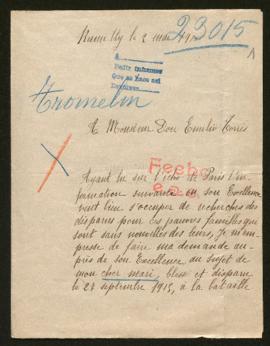 Rumilly le 2 mai
23015
A
Pedir informes
Que se hace así
Tromelin
A Monsieur Don Emilio Torrès
Fecho
Ayant lu sur l'écho de Paris l'in-
formation suivante où son Excellence
veut bien s'occuper de recherches des
disparus pour les pauvres familles qui
sont sans nouvelles des leurs, je m'em-
presse de faire ma demande au-
près de son Excellence au sujet de
mon cher mari, blessé et disparu
le 28 septembre 1915, à la bataille